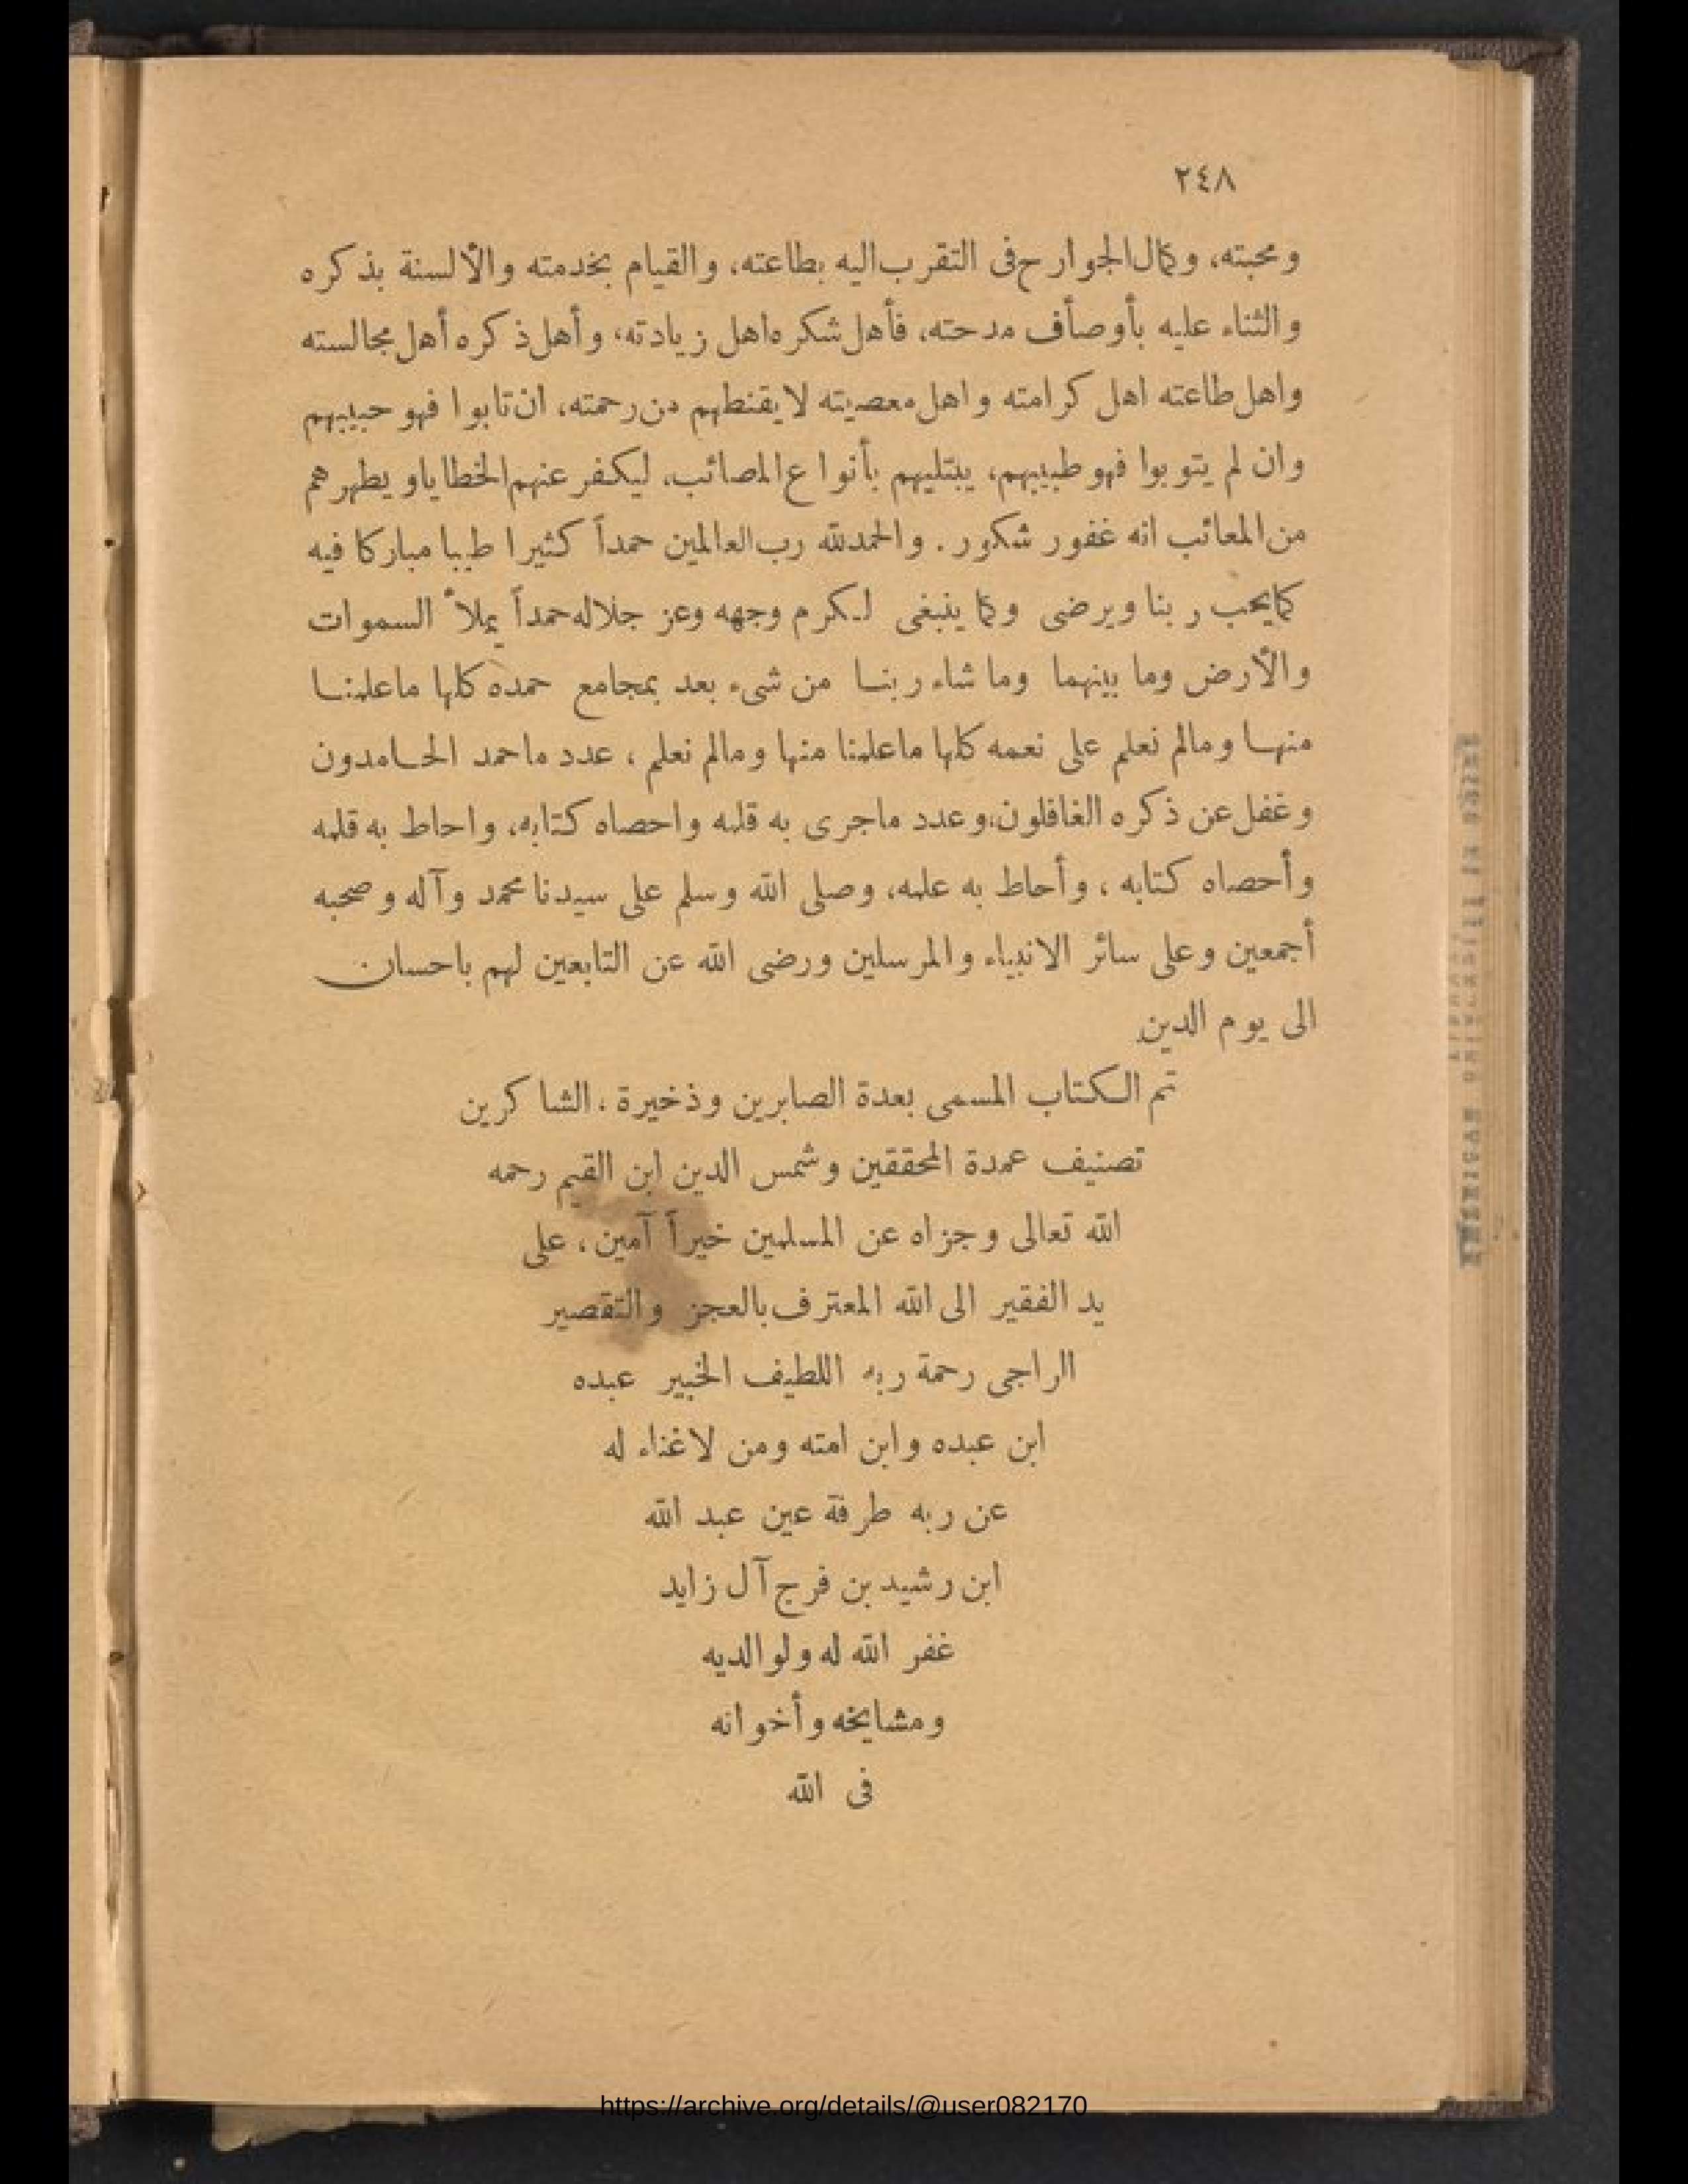 ٢٤٨
ومحبته، وكمال الجوارح فى التقرب اليه بطاعته، والقيام بخدمته والألسنة بذكره
والثناء عليه بأوصأف مدحته، فأهل شكره اهل زيادته، وأهل ذكره أهل مجالسته
واهل طاعته اهل كرامته واهل معصيته لا يقنطهم من رحمته، ان تابوا فهو حبيبهم
وان لم يتوبوا فهو طبيبهم، يبتليهم بأنواع المصائب، ليكفر عنهم الخطايا ويطهرهم
من المعائب انه غفور شكور. والحمد لله رب العالمين حمداً كثيرا طيبا مباركا فيه
كما يحب ربنا ويرضى وكما ينبغى لكرم وجهه وعز جلاله حمداً يملأ السموات
والأرض وما بينهما وما شاء ربنا من شىء بعد بمجامع حمده كلها ما علمنا
منها وما لم نعلم على نعمه كلها ما علمنا منها وما لم نعلم ، عدد ما حمد الحامدون
وغفل عن ذكره الغافلون، وعدد ما جرى به قلمه واحصاه كتابه، واحاط به قلمه
وأحصاه كتابه ، وأحاط به علمه، وصلى الله وسلم على سيدنا محمد وآله وصحبه
أجمعين وعلى سائر الانبياء والمرسلين ورضى الله عن التابعين لهم باحسان
الى يوم الدين
تم الكتاب المسمى بعدة الصابرين وذخيرة ، الشاكرين
تصنيف عمدة المحققين وشمس الدين ابن القيم رحمه
الله تعالى وجزاه عن المسلمين خيراً آمين ، على
يد الفقير الى الله المعترف بالعجز والتقصير
الراجى رحمة ربه اللطيف الخبير عبده
ابن عبده وابن امته ومن لا غناء له
عن ربه طرفة عين عبد الله
ابن رشيد بن فرج آل زايد
غفر الله له ولوالديه
ومشايخه وأخوانه
فى الله
https://archive.org/details/@user082170